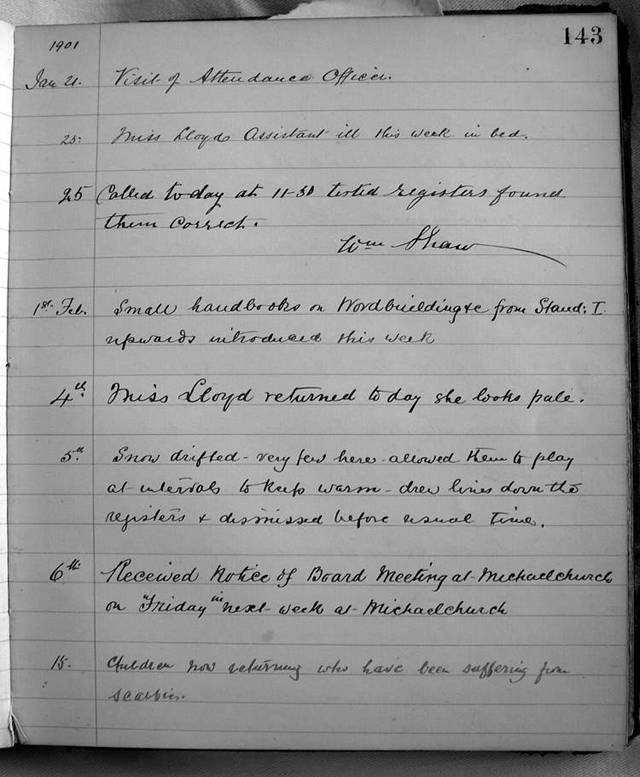 143
1901
Jan 21. Visit of Attendance Officer.
25. Miss Lloyd Assistant ill this week in bed.
25 Called today at 11-30 tested registers found
them correct.
Wm Shaw
1st Feb. Small handbooks on Wordbuilding &c from Stand: I
upwards introduced this week
4th. Miss Lloyd returned today she looks pale.
5th. Snow drifted - very few here - allowed them to play
at intervals to keep warm - drew lines down the
registers & dismissed before usual time.
6th. Received Notice of Board Meeting at Michaelchurch
on "Friday" in next week at Michaelchurch
15. Children now returning who have been suffering from